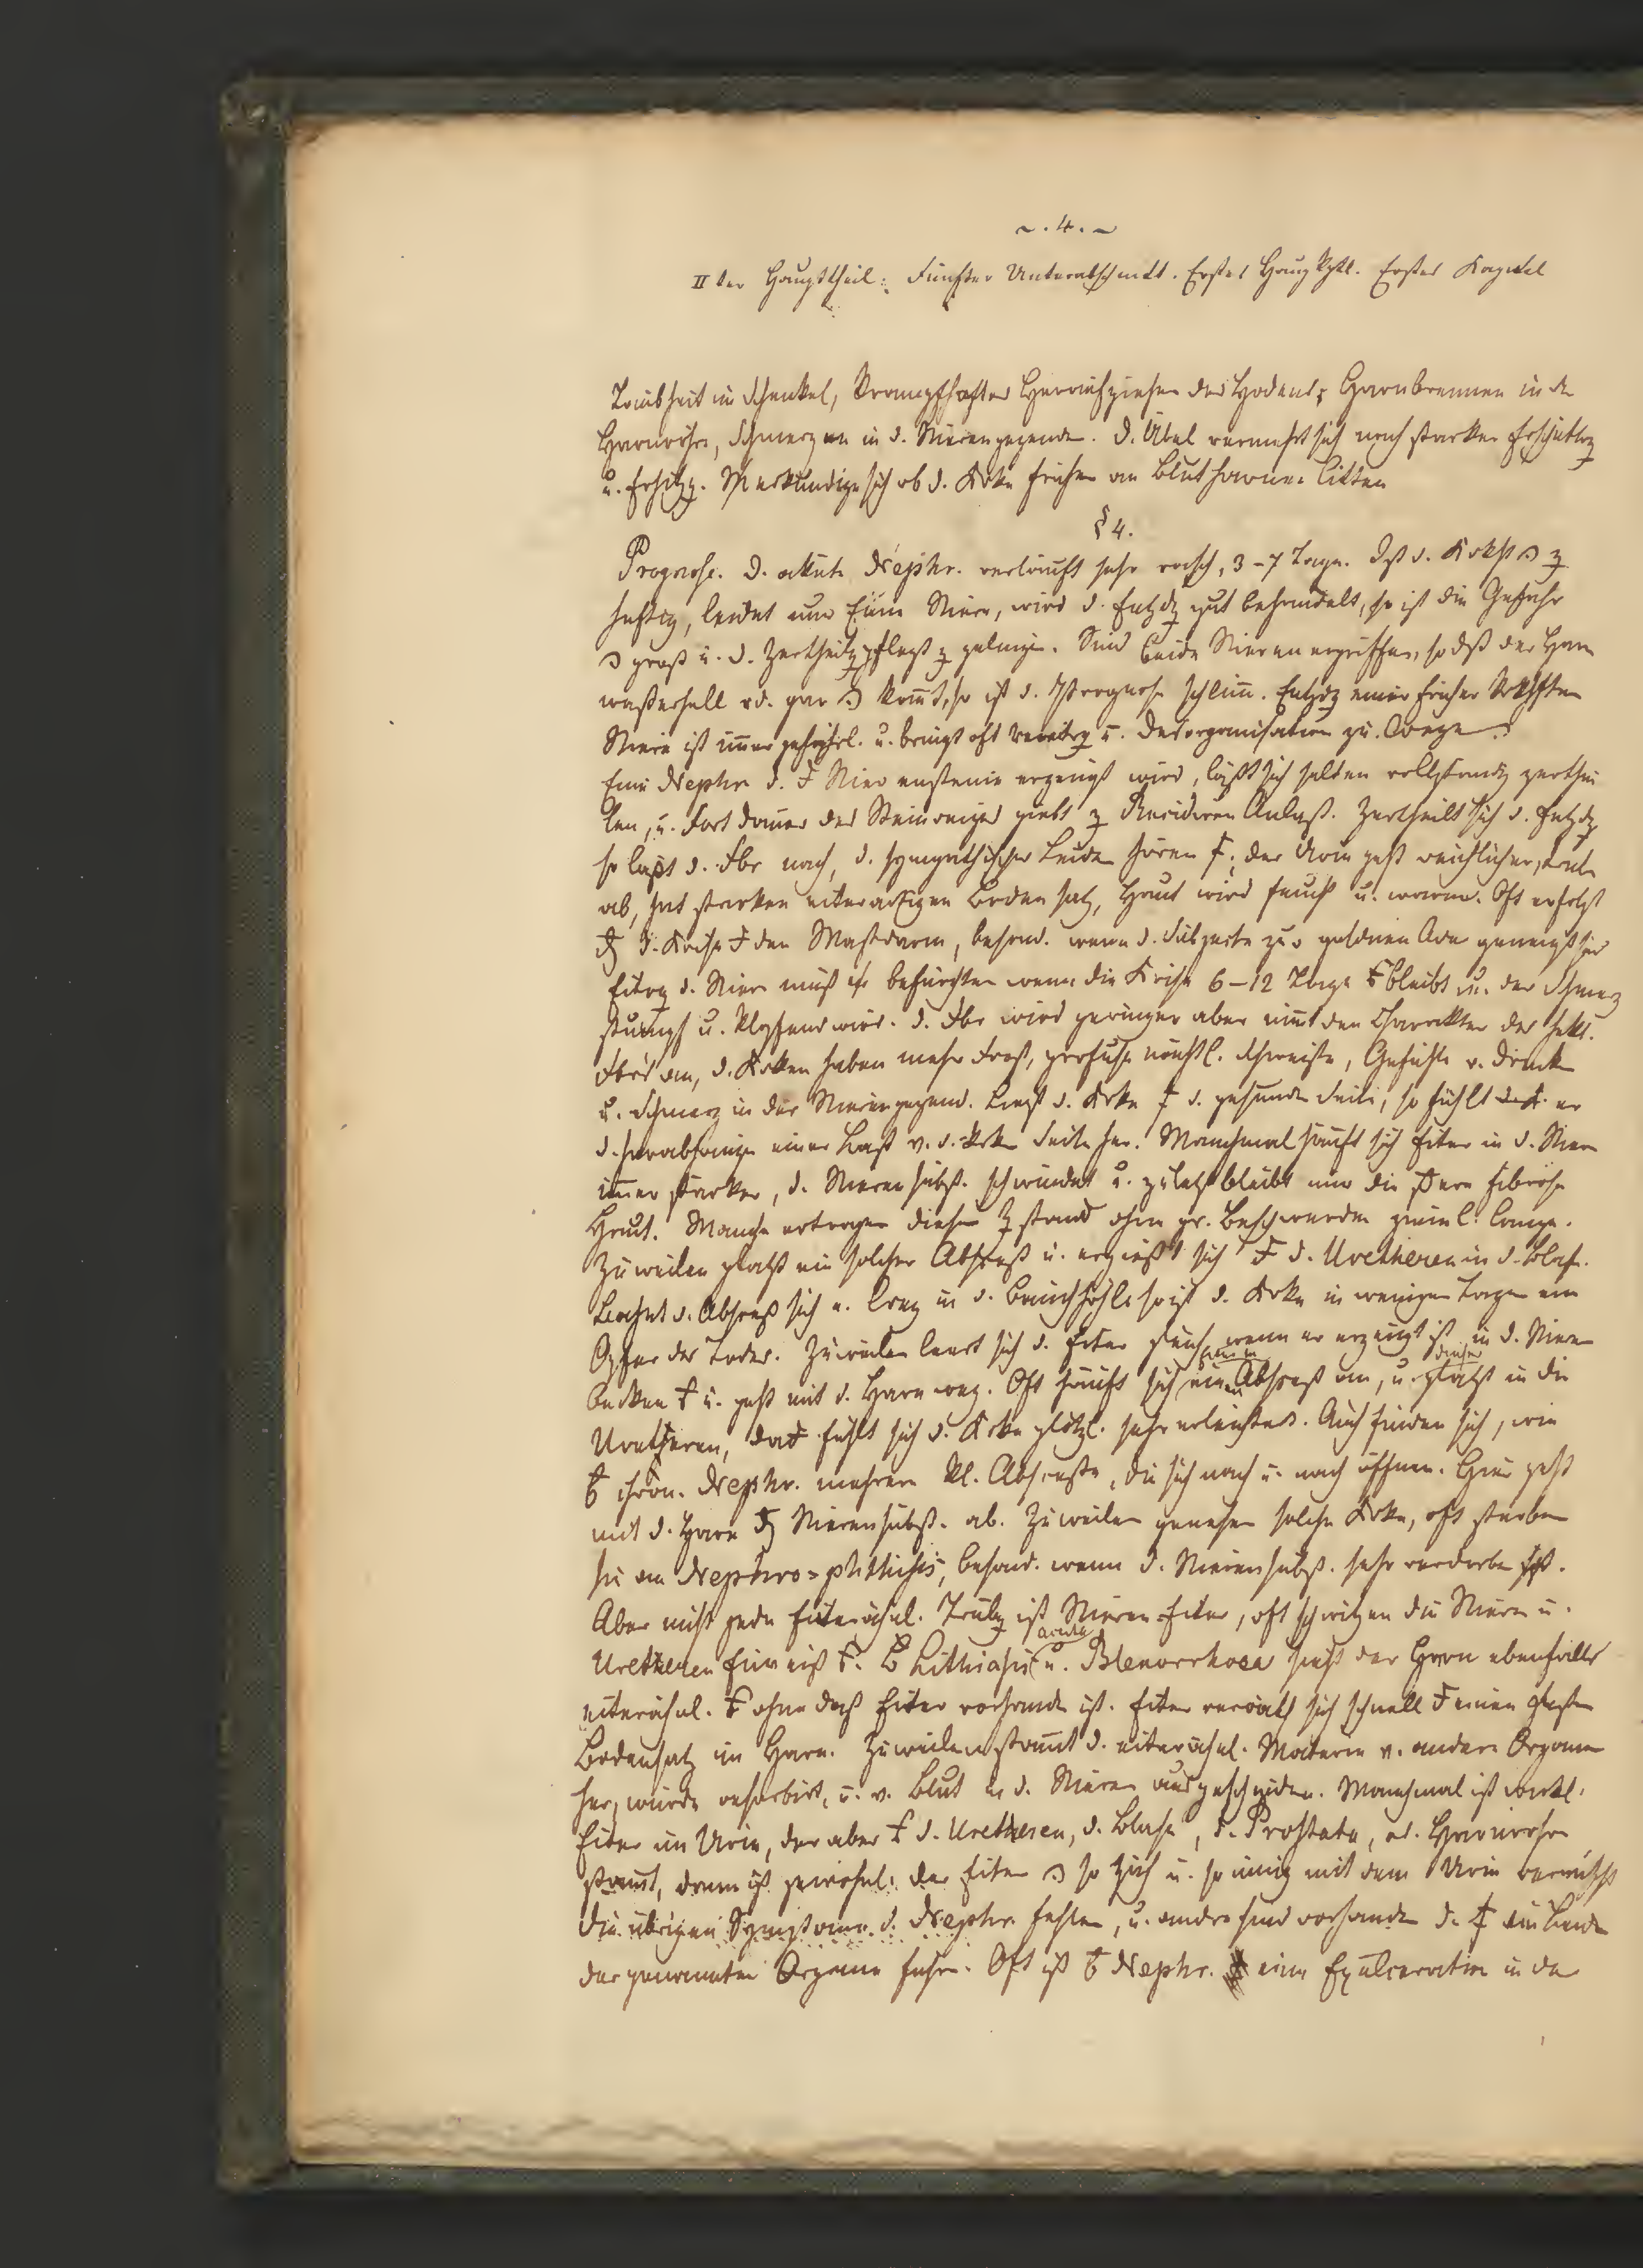 ~. 4. ~
II ter Haupttheil: Fünfter Unterabschnitt. Erstes Hauptkptl. Erstes Kapitel
Taubheit im Schenkel, krampfhaftes Heraufziehen des Hodens, Harnbrennen in de
Harnröhre, Schmerzen in d. Nierengegende. D. Übel vermehrt sich nach starker
u. Man erkundige sich ob d. Krke früher an Blutharnen litten
§ 4.
Prognose. D. akute Nephr. verläuft sehr rasch, 3-7 Tage. Ist d.
heftig, leidet nur Eine Niere, wird d. Entzdg gut behandelt, so ist die Gefahr
groß u. d. Zertheilg pflegt z gelingen. Sind beide Nieren ergriffen, so dß der Harn
wasserhell od. gar komt, so ist d. Prognose schlim. Entzdg einer früher
Niere ist imer gefährl. u. bringt oft Vereitrg u. Desorganisation zu Wege.
Eine Nephr. d. Nierensteine erzeugt wird, läßt sich selten vollständig zerthei
len, u. Fortdauer des Steinreizes giebt z Recidiven Anlaß. Zertheilt sich d. Entzdg
so läßt d. Fbr nach, d. sympathischen Leiden hören; der Urin geht reichlicher,
ab, hat starken eiterartigen Bodensatz, Haut wird feucht u. warm. Oft erfolgt
d. Krise den Mastdarm, besond. wenn d. Subjecte zur goldnen Ader geneigt sind
Eitrg d. Niere muß befürchten wenn die Krise 6-12 Tage bleibt u. der Schmerz
stumpf u. klopfend wird. D. Fbr wird geringer aber nimt den Charakter des hekt.
Fbrs an, d. Krken haben mehr Frost, profuse nächtl. Schweiße, Gefühle v. Druck
u. Schmerz in der Nierengegend. Liegt d. Krke d. gesunde Seite, so fühlt er
d. Herabhängen einer Last v. d. Seite her. Manchmal häuft sich Eiter in d. Niere
imer stärker, d. Nierensubst. schwindet u. zuletzt bleibt nur die fibröse
Haut. Manche ertragen diesen Zstand ohne gr. Beschwerden zieml. lange.
Zuweilen platzt ein solcher Absceß u. ergießt sich d. Uretheren in d. Blase.
Bahnt d. Absceß sich e. Weg in d. Bauchhöhle so ist d. Krke in wenigen Tagen ein
Opfer des Todes. Zuweilen leert sich d. Eiter gleich wenn er erzeugt ist in d. Nieren
becken u. geht mit d. Harn weg. Oft häuft sich Absceß an, u. dieser platzt in die
Uretheren, fühlt sich d. Krke plötzl. sehr erleichtert. Auch finden sich, wie
chron. Nephr. mehrere kl. Abscesse, die sich nach u. nach öffnen. Hier geht
mit d. Harn Nierensubst. ab. Zuweilen genesen solche Krke, oft sterben
sie an Nephro=phthisis, besond. wenn d. Nierensubst. sehr verdorben ist.
Aber nicht jede eiterähnl. Trübg ist Nieren-Eiter, oft schwitzen die Nieren u.
Uretheren Eiweiß. Lithiasis u. acuta Blenorrhoea sieht der Harn ebenfalls
eiterähnl. ohne daß Eiter vorhanden ist. Eiter verräth sich schnell einen
Bodensatz im Harn. Zuweilen stamt d. eiterähnl. Materie v. andern Organen
her, wurde resorbirt, u. v. Blut in d. Nieren ausgeschieden. Manchmal ist wirkl.
Eiter im Urin, der aber d. Uretheren, d. Blase, d. Prostata, od. Harnröhre
stamt, dann ist gewöhnl. der Eiter so u. so innig mit dem Urin vermischt
die übrigen Symptome d. Nephr. fehlen, u. andre sind vorhanden d. ein Leiden
der genannten Organe. Oft ist Nephr. eine Exulceration in der